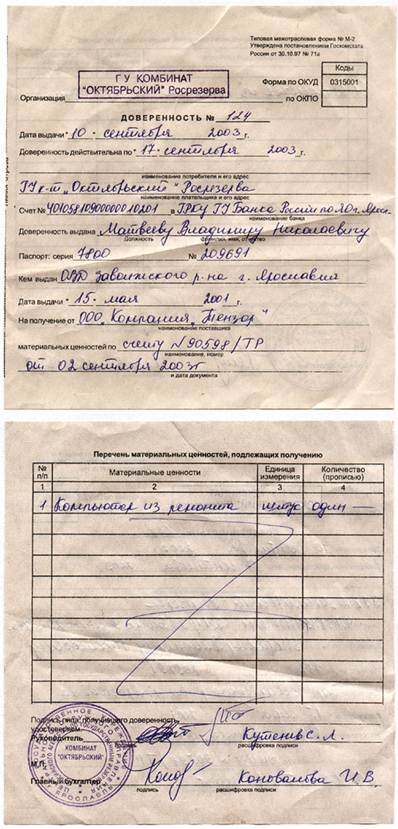 Типовая межотраслевая форма № М-2
Утверждена постановлением Госкомстата
России от 30.10.97 № 71а
Коды
Форма по ОКУД 0315001
ГУ КОМБИНАТ
"ОКТЯБРЬСКИЙ" Росрезерва
Организация по ОКПО
ДОВЕРЕННОСТЬ № 124
Дата выдачи "10" сентября 2003 г.
Доверенность действительна по "17" сентября 2003 г.
наименование потребителя и его адрес
ГУ к-т "Октябрьский" Росрезерва
наименование плательщика и его адрес
Счет № в ГРКЦ ГУ Банка России по ЯО г. Яросл.
наименование банка
Доверенность выдана Матвееву Владимиру Николаевичу
должность фамилия, имя, отчество
Паспорт: серия 7800 № 209691
Кем выдан ОВД Заволжского р-на г. Ярославля
Дата выдачи "15" мая 2001 г.
На получение от ООО "Компания "Тензор"
наименование поставщика
материальных ценностей по счету N 90598/ТР
наименование, номер
от 02 сентября 2003г
и дата документа
Перечень материальных ценностей, подлежащих получению
№ п/п Материальные ценности Единица измерения Количество (прописью)
1 2 3 4
1 Компьютер из ремонта штука один —
Подпись лица, получившего доверенность
удостоверяем
Руководитель Кутенив С.Л.
подпись расшифровка подписи
М.П.
КОМБИНАТ
"ОКТЯБРЬСКИЙ"
Главный бухгалтер Коновалова И.В.
подпись расшифровка подписи